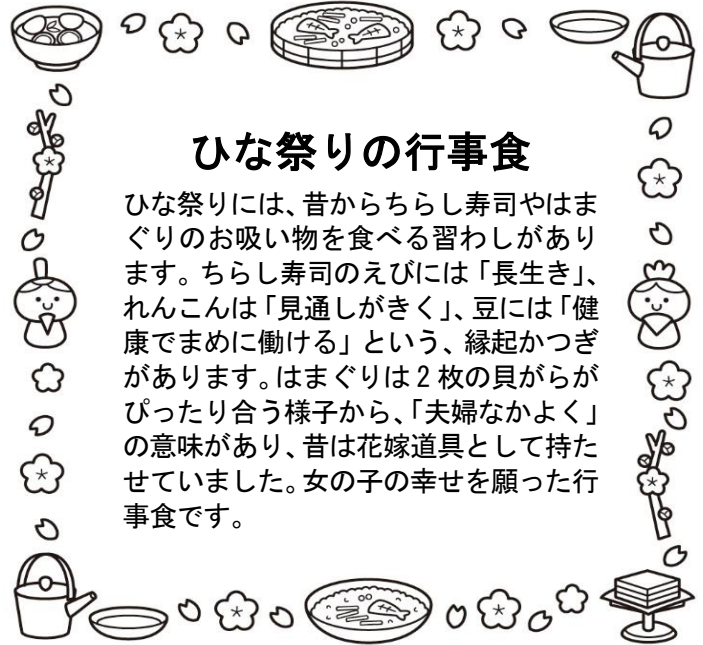 ひな祭りの行事食
ひな祭りには、昔からちらし寿司やはま
ぐりのお吸い物を食べる習わしがあり
ます。ちらし寿司のえびには「長生き」、
れんこんは「見通しがきく」、豆には「健
康でまめに働ける」という、縁起かつぎ
があります。はまぐりは2枚の貝がらが
ぴったり合う様子から、「夫婦なかよく」
の意味があり、昔は花嫁道具として持た
せていました。女の子の幸せを願った行
事食です。